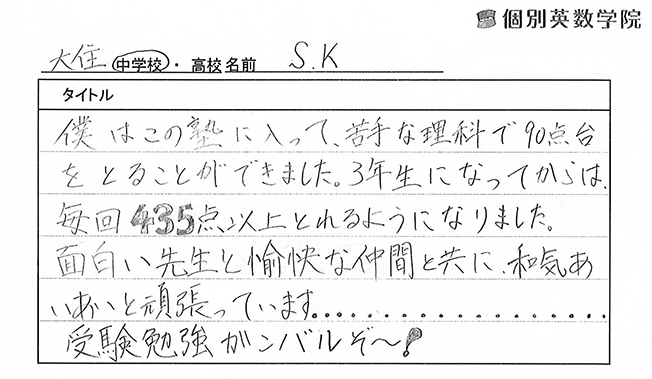 個別英数学院
大住 中学校・高校 名前 S.K
タイトル
僕はこの塾に入って、苦手な理科で90点台
をとることができました。3年生になってからは、
毎回435点以上とれるようになりました。
面白い先生と愉快な仲間と共に、和気あ
いあいと頑張っています....................
受験勉強ガンバルぞ〜!